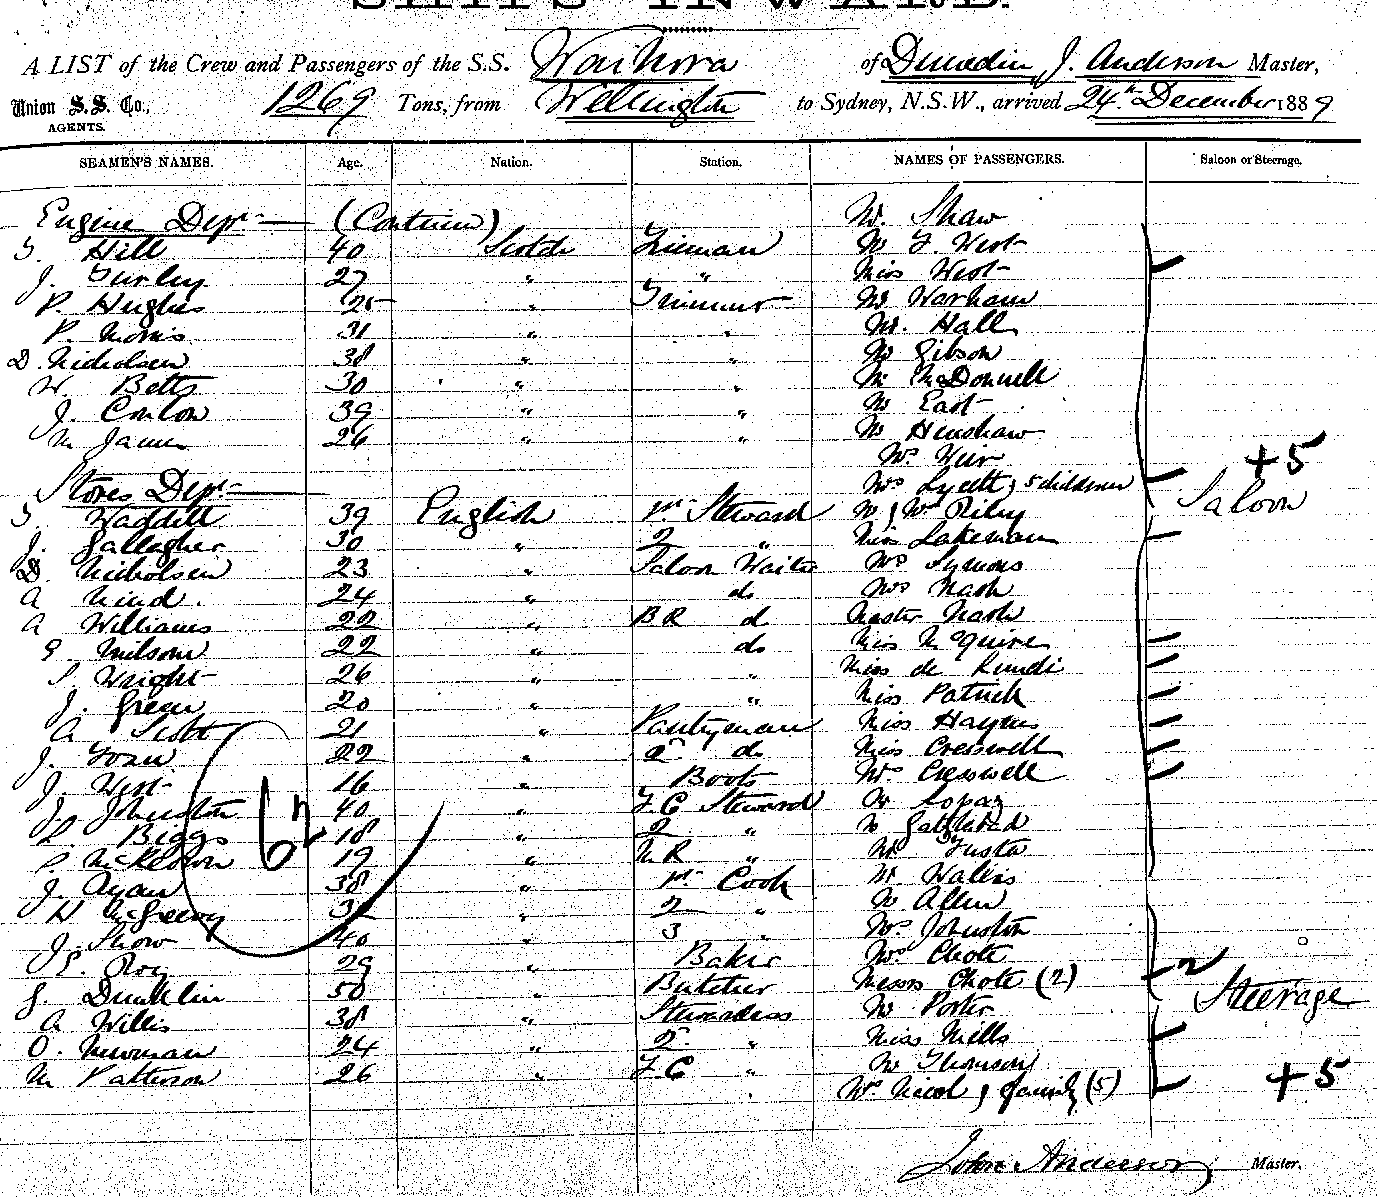 SHIPS INWARD.
A LIST of the Crew and Passengers of the S.S. Waihora of Dunedin J. Anderson Master,
Union S.S. Co., AGENTS. 1269 Tons, from Wellington to Sydney, N.S.W., arrived 24th December 1889
SEAMEN'S NAMES. Age. Nation. Station. NAMES OF PASSENGERS. Saloon or Steerage.
Engine Dept (Continued) Mr. Shaw
Hill 40 Scotch Fireman Mr F. West
J. Turley 27 " " Miss West
P. Hughes 25 " Trimmer Mr Warham
P. Morris 31 " " Mr. Hall
D. Nicholson 38 " " Mr Gibson
W. Betts 30 " " Mr McDonnell
J. Conlon 39 " " Mr East
M James 26 " " Mr Henshaw
Mrs Weir +5
Stores Dept Mrs Lycett & 5 children Saloon
Waddell 39 English 1st Steward Mr & Mrs Riley
J. Gallagher 30 " 2 " Miss Lakeman
D. Nicholson 23 " Saloon Waiter Mrs Symons
A 24 " do Mrs Nash
A Williams 22 " BR do Master Nash
Milsom 22 " do Miss McGuire
S. Wright 26 " " Miss de
J. Green 20 " " Miss Patrick
A Scott 21 " Pantryman Miss Haynes
J. 22 " 2 do Miss Cresswell
J. West 16 " Boots Mrs Cresswell
J. Johnston 40 " F.C Steward Mr Lopaz
Biggs 18 " 2 " Mr
62
McKeown 19 " M R " Mr
J. Ryan 38 " 1st Cook Mr Walers
H McGreevy 32 " 2 " Mr Allen
J. Show 40 " 3 " Mrs Johnston
Roy 29 " Baker Mrs Chote
J. Duncklin 50 " Butcher Messrs Chote (2) 2
A Willis 38 " Stewardess Mr Porter Steerage
O. Newman 24 " 2 " Miss Mills
M Patterson 26 " F.C " Mr Thomson +5
Mrs Nicol & family (5)
John Anderson Master.